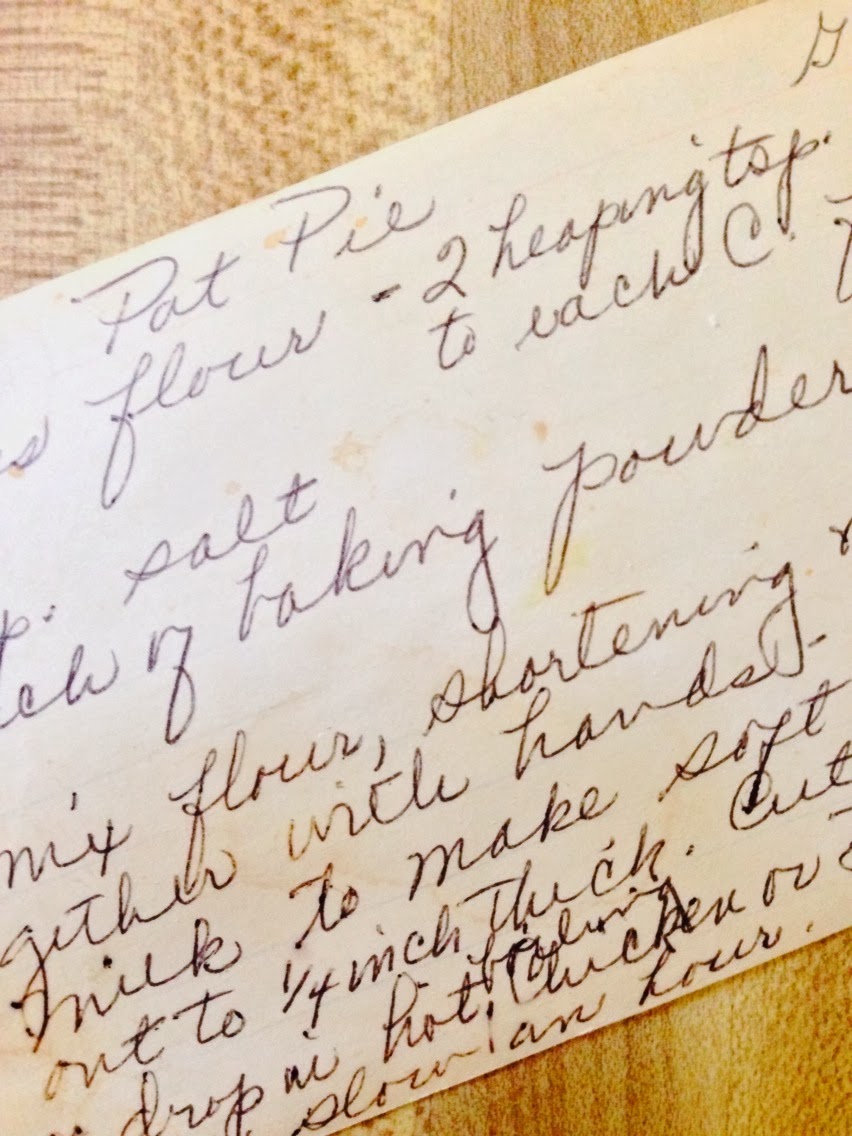 G
Pot Pie
flour - 2 heaping tsp.
to each C.
salt
of baking powder
mix flour, shortening
gether with hands -
milk to make soft
out to 1/4 inch thick. Cut
boiling
drop in hot, chicken or
slow an hour.